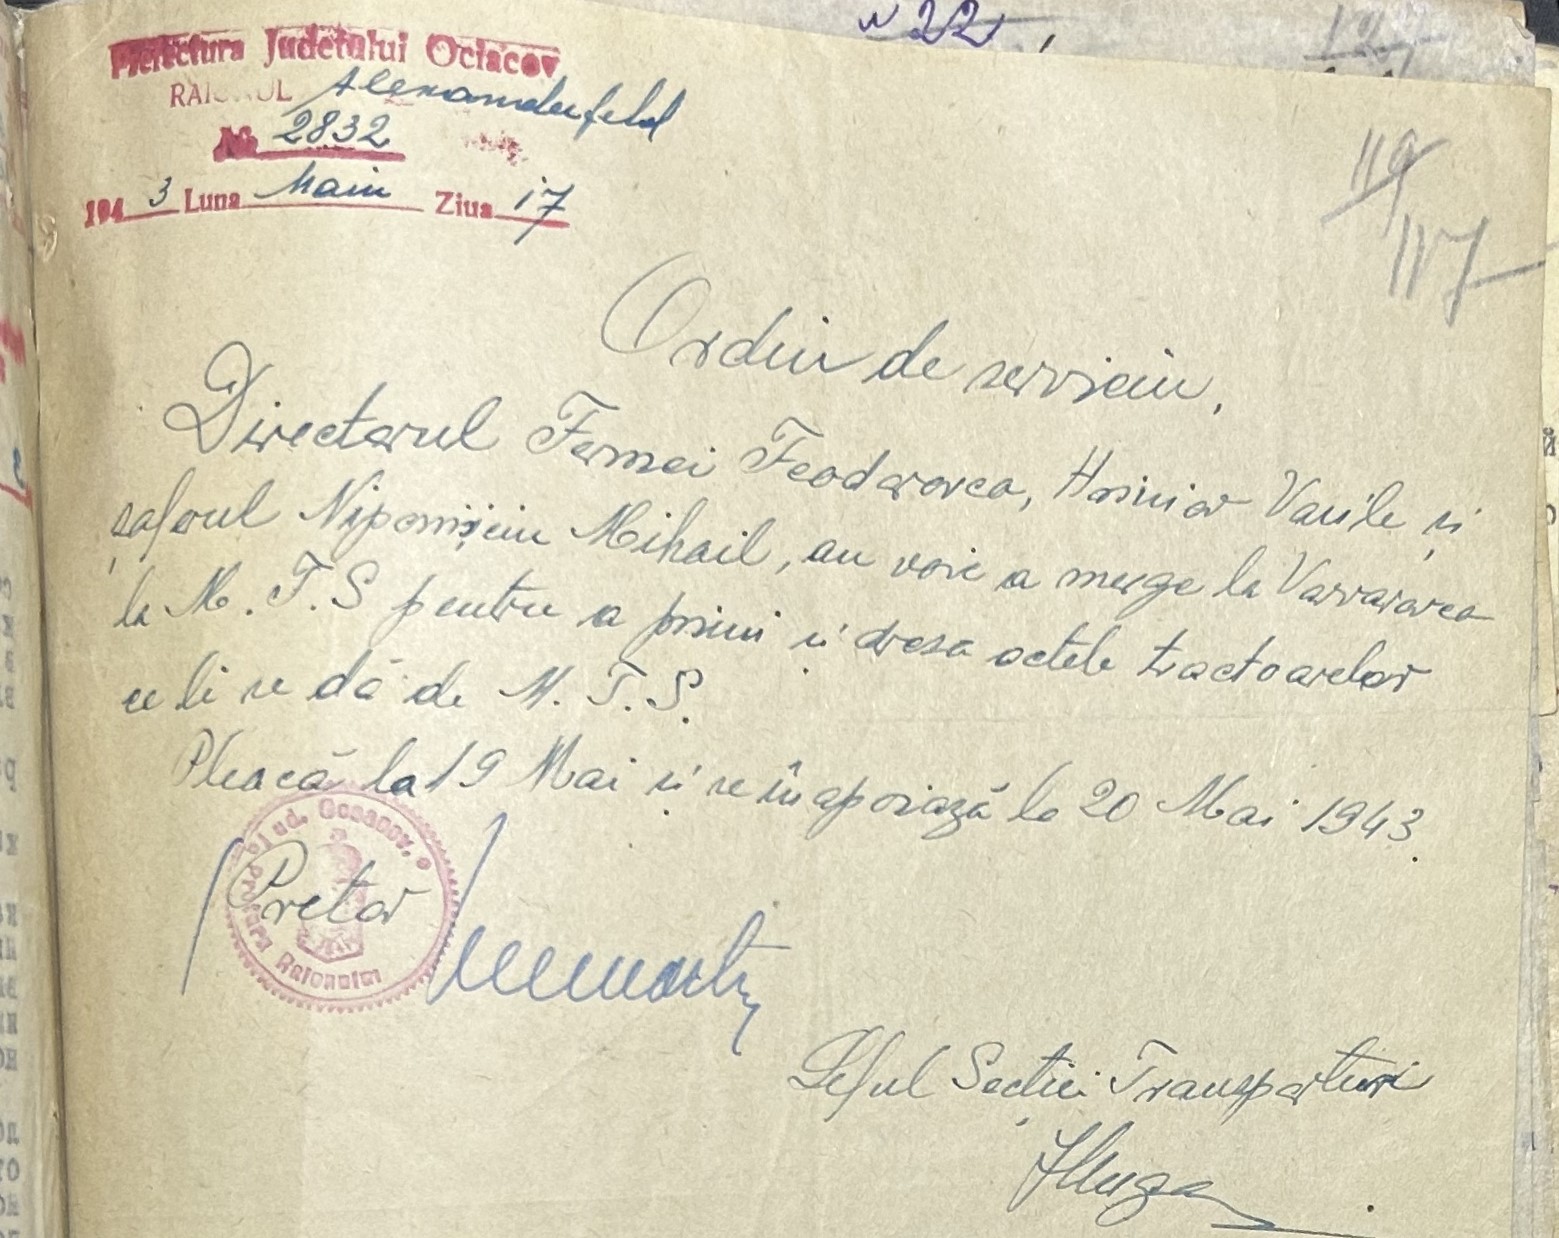 N 22,
Prefectura Judetului Ociacov
RAIONUL Alexanderfeld
No. 2832
1943 Luna Maiu Ziua 17
119
117
Ordin de serviciu,
Directorul Fermei Feodorovca, Vasile și
șoferul Mihail, au voie a merge la Varvarovca
la M.T.S pentru a primi și dresa actele tractoarelor
ce li se dă de M.T.S.
Pleacă la 19 Mai și se înapoiază la 20 Mai 1943.
Pretor
Pretura Raionului Jud.
Șeful Secției Transporturi